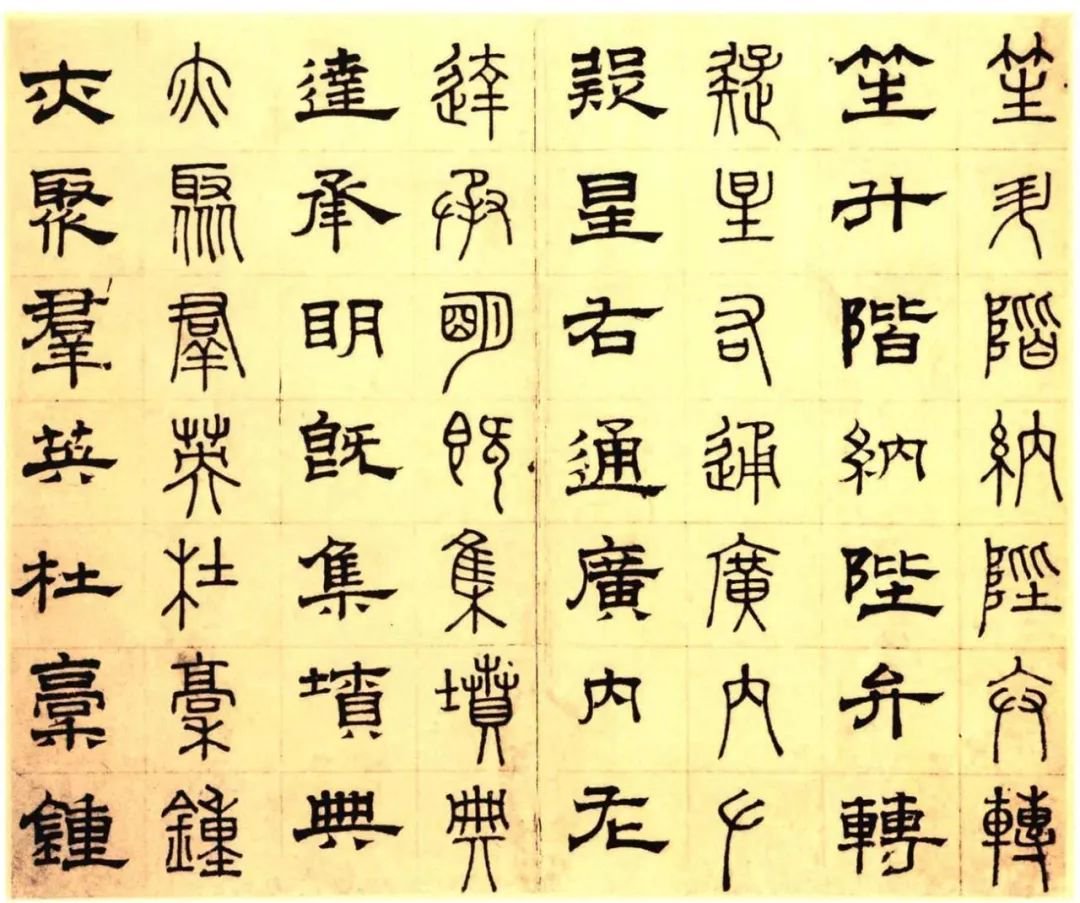 笙升階納陛弁轉
笙升階納陛弁轉
疑星右通廣内左
疑星右通廣内左
達承明既集墳典
達承明既集墳典
亦聚羣英杜槀鍾
亦聚羣英杜槀鍾